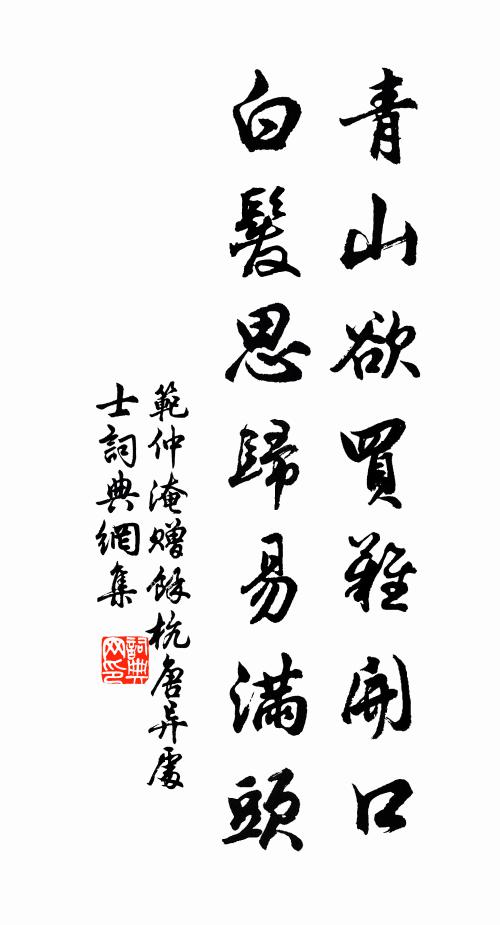 青山欲買難開口
白髮思歸易滿頭
範仲淹贈餘杭唐异處
士詞典網集
詞典網印